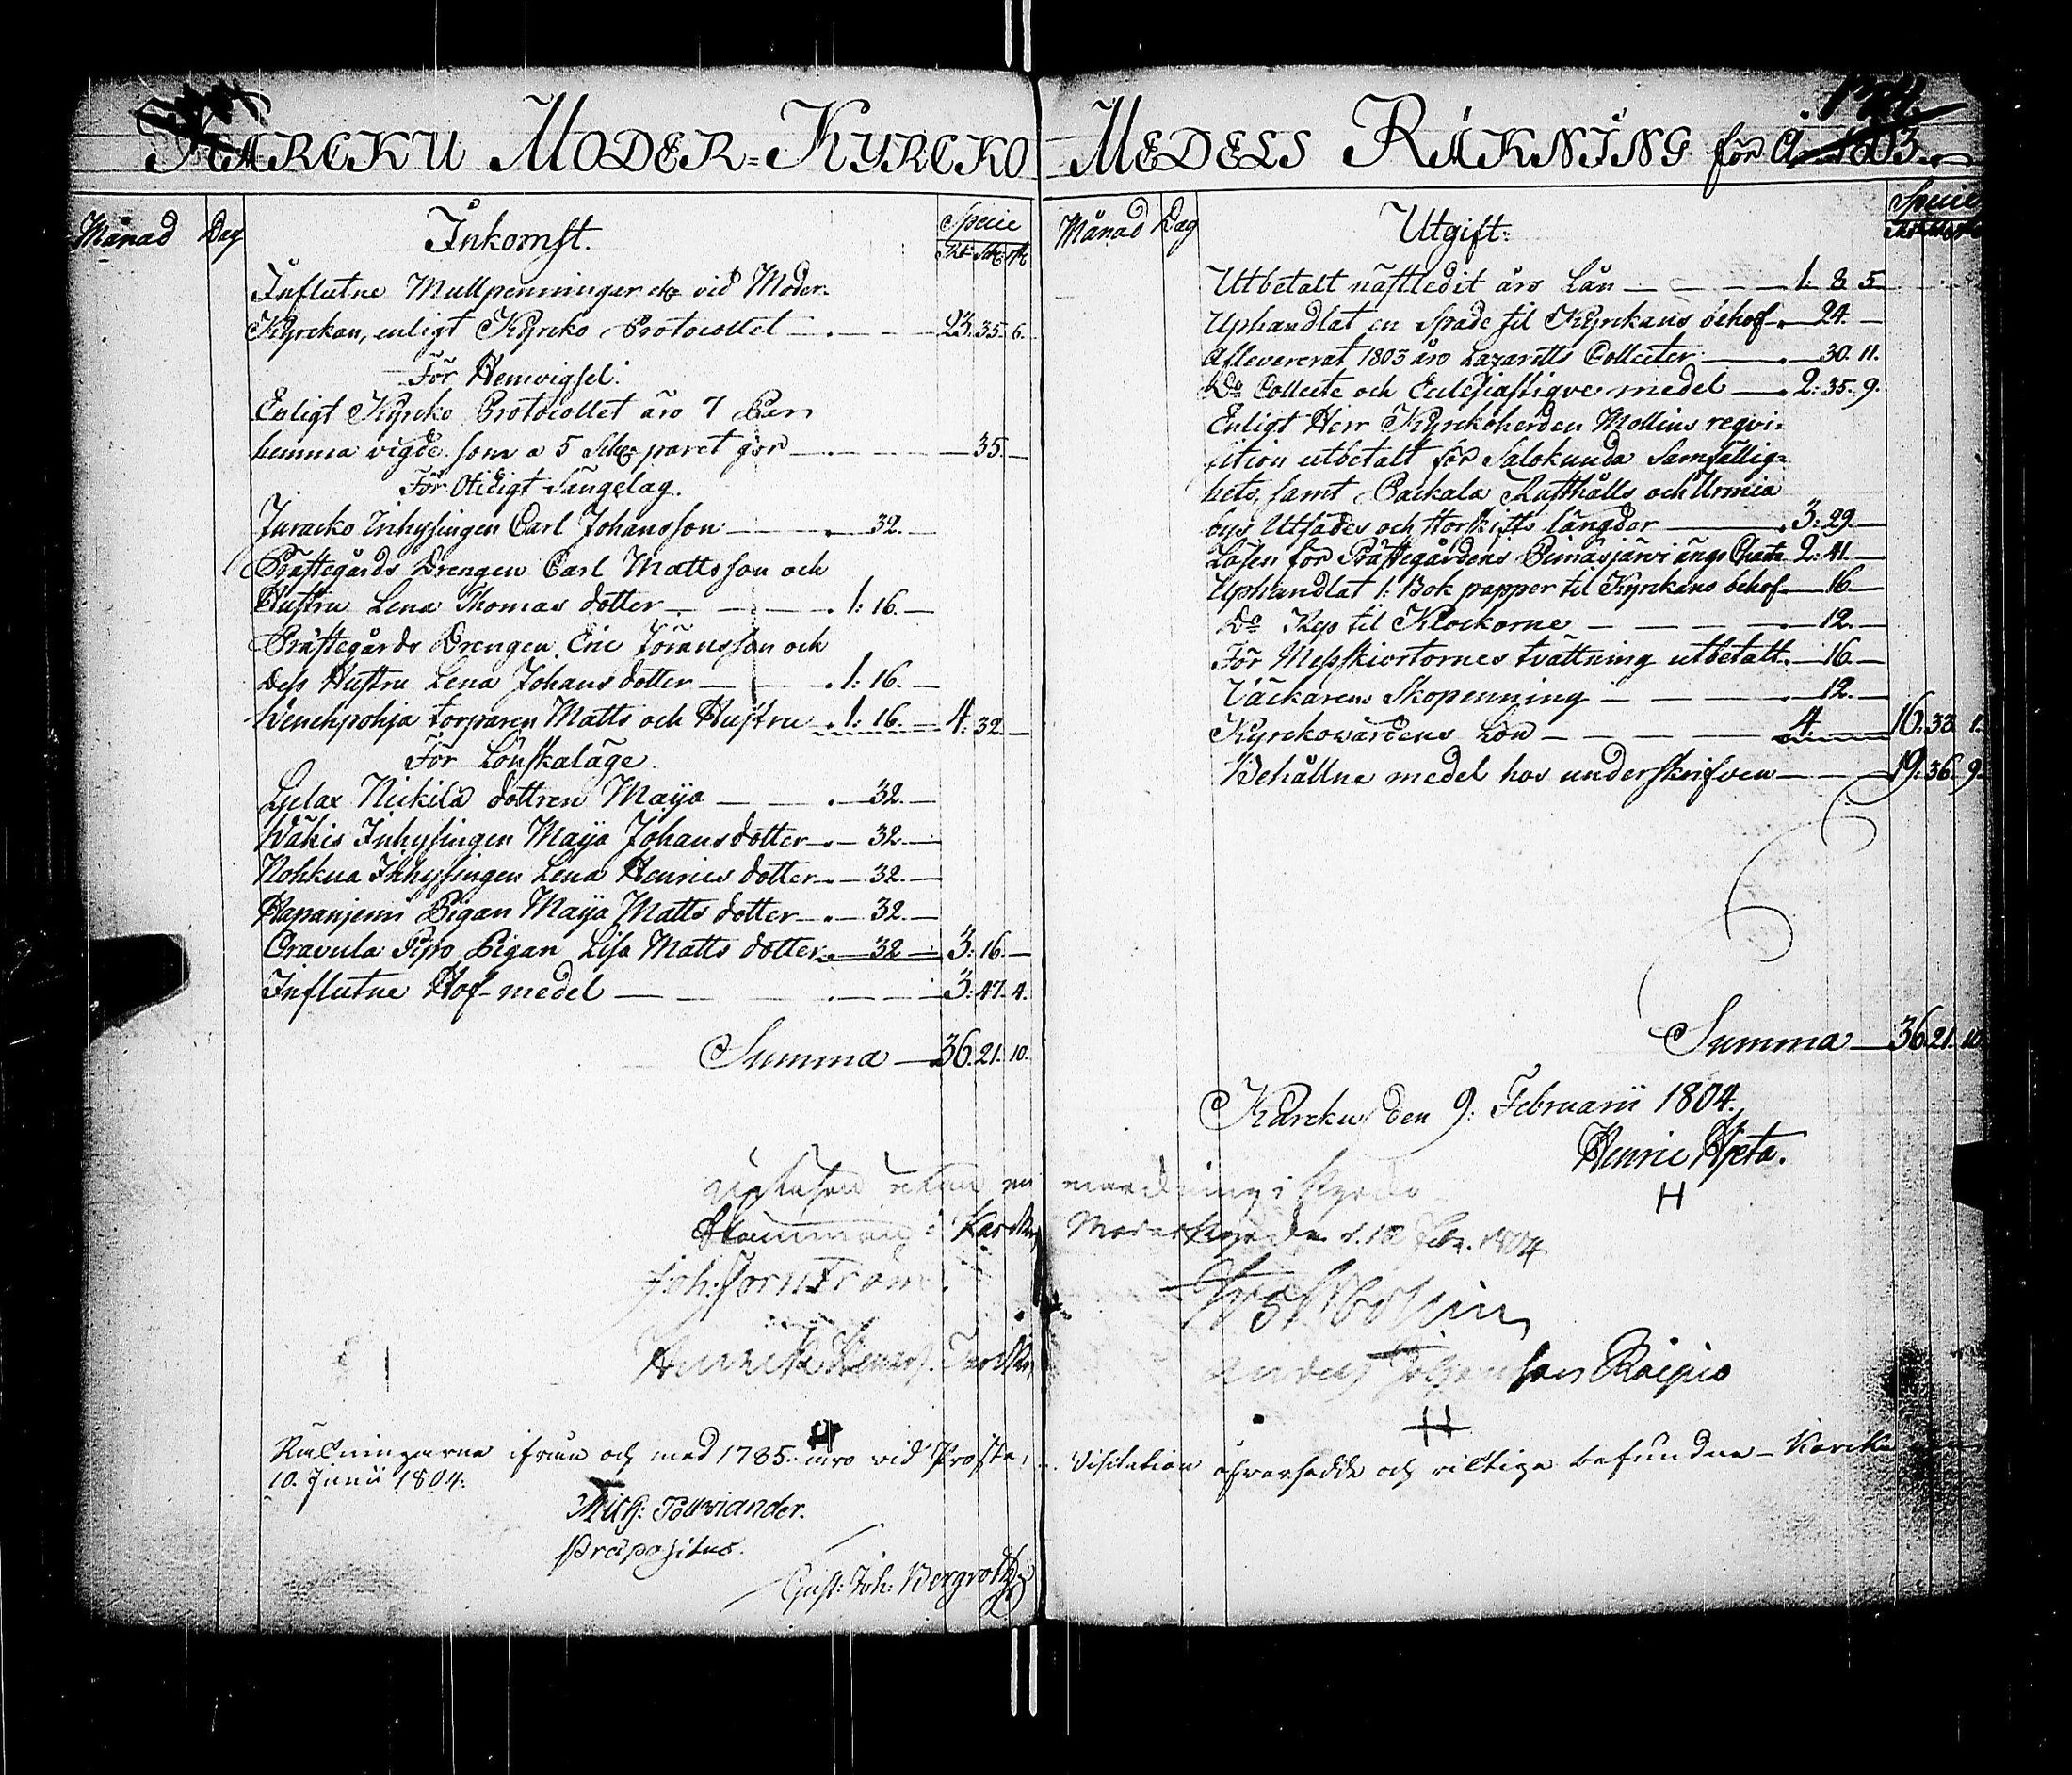 KARCKU MODER-KYRCKO MEDELS RÄKNING för År 1803.
Månad Dag Inkomst. Specie
Rd. Sch. rst.
Influtne Mullpenningar etc vid Moder-
Kyrckan, enligt Kyrcko Protocollet 23. 35. 6.
För Hemvigsel.
Enligt Kyrcko Protocollet äro 7 Par
hemma vigde som a 5 Sch. paret gör 35.
För Otidigt Sängelag.
Juracko Inhysingen Carl Johansson 32.
Prästegårds Drengen Carl Mattsson och
Hustru Lena Thomas dotter 1: 16.
Prästegårds Drengen Eric Göransson och
Dess Hustru Lena Johans dotter 1: 16.
torparen Matts och Hustru 1: 16. 4: 32.
För Lönskaläge.
Neckilä dottren Maija 32.
Wähis Inhysingen Maija Johans dotter 32.
Nohkua Inhysingen Lena Henrics dotter 32.
Hapanjemi Pigan Maija Matts dotter 32.
Oravula Pipo Pigan Lisa Matts dotter 32 3: 16.
Influtne Hof-medel 3: 47. 4.
Summa 36. 21. 10.
Joh: Fornström.
Räkningarne ifrån och med 1785 års vid Proste-
10. Junii 1804.
Praepositus.
Gust: Joh: Bergroth
Månad Dag Utgift: Specie
Utbetalt nästledit års Lån 1: 8 5
Uphandlat en Spade til Kyrckans behof 24.
Aflevererat 1803 års Lazaretts Collecter 30. 11.
Do Collecte och Ecclesiastique medel 2: 35. 9.
Enligt Herr Kyrckoherden Mollins reqvi-
sition utbetalt för Salokunda Samfällig-
hets, samt Packala Rusthålls och Urmia
bys Utsädes och Storskifts längder 3: 29.
Lösen för Prästegårdens ängs Charta 2: 41.
Uphandlat 1: Bok papper til Kyrckans behof 16.
Do Rep til Klockorne 12.
För Messskiortornes tvättning utbetalt 16.
Väckarens Skopenning 12.
Kyrckovärdens Lön 4. 16. 33. 1.
Behållne medel hos underskrifven 19: 36. 9.
Summa 36 21. 10.
Karcku den 9: Februarii 1804.
Henric Hjeta.
H
Moderkyrcka d. 12 Febr. 1804
Johansson Roipio
Visitation öfversedde och riktige befundne - Karcku